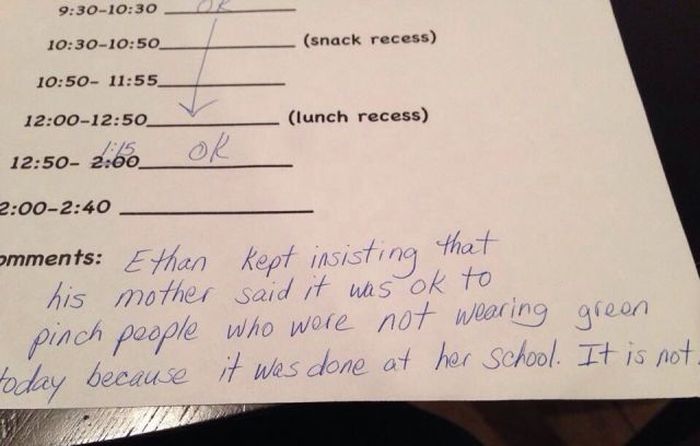 9:30-10:30 OK
10:30-10:50 (snack recess)
10:50- 11:55
12:00-12:50 (lunch recess)
1:15
12:50- 2:00 OK
2:00-2:40
omments: Ethan kept insisting that
his mother said it was ok to
pinch people who were not wearing green
today because it was done at her school. It is not.